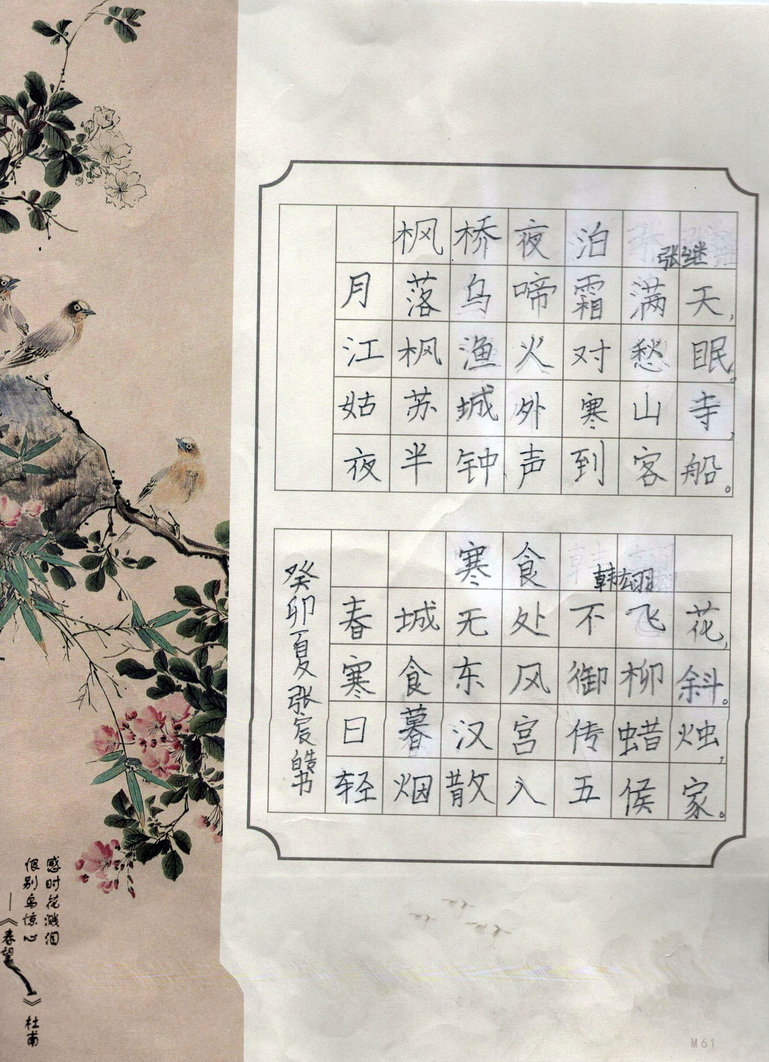 枫桥夜泊
张继
月落乌啼霜满天，
江枫渔火对愁眠。
姑苏城外寒山寺，
夜半钟声到客船。
寒食
韩翃
春城无处不飞花，
寒食东风御柳斜。
日暮汉宫传蜡烛，
轻烟散入五侯家。
癸卯夏张宸皓书
感时花溅泪
恨别鸟惊心
——《春望》杜甫
M61